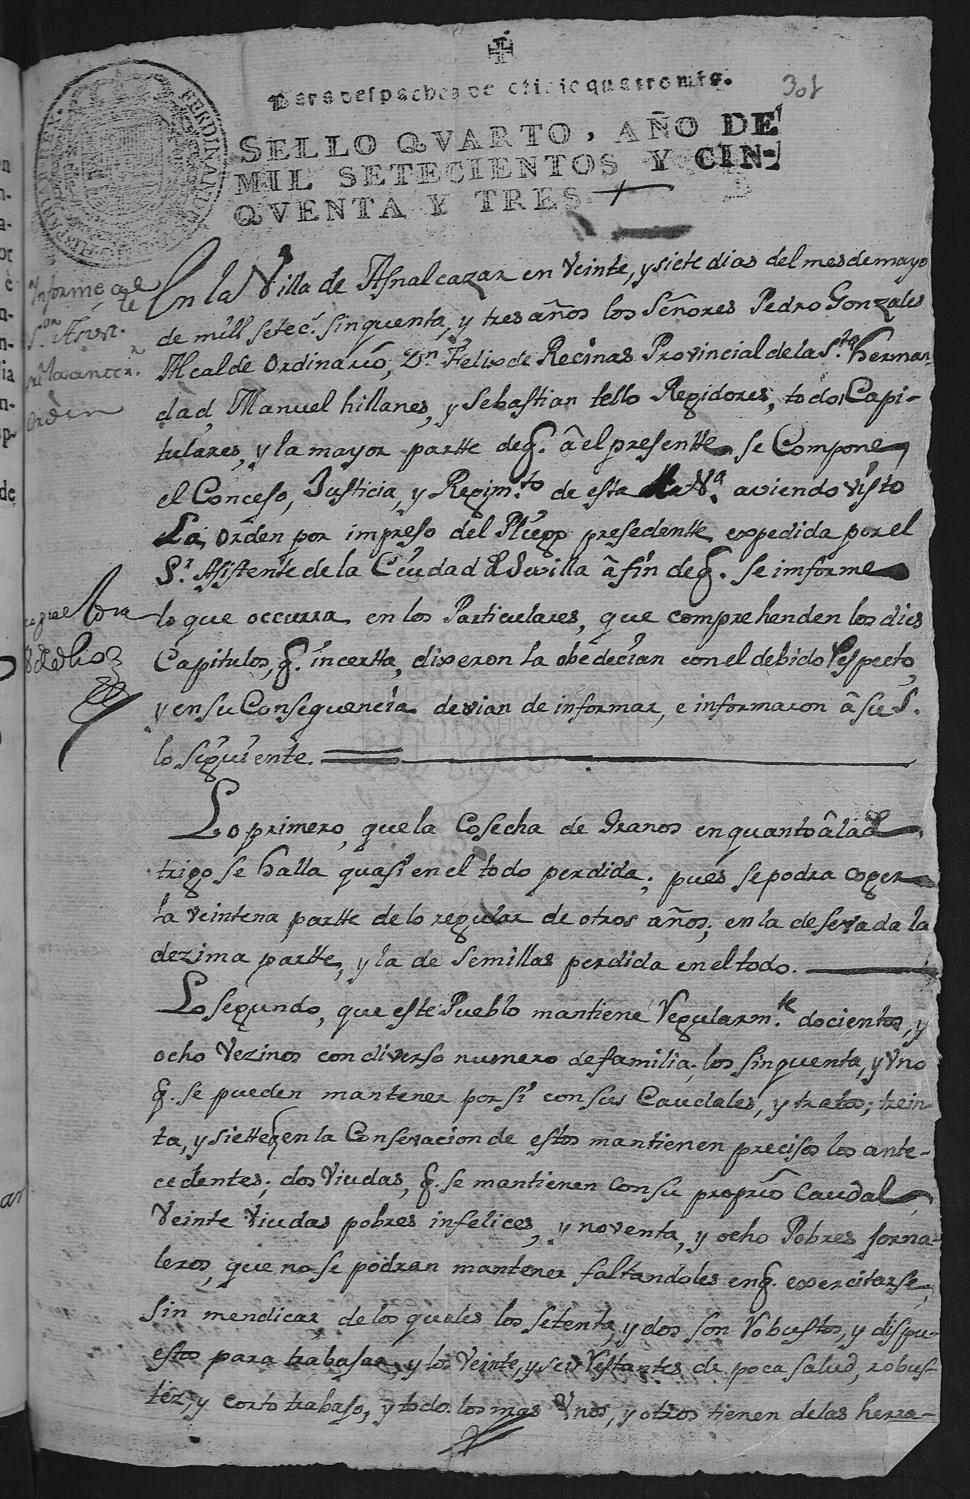 301
Para despachos de oficio quatro mrs.
SELLO QVARTO, AÑO DE
MIL SETECIENTOS Y CIN-
QVENTA Y TRES
Informe al
Sor. Asist.te
a la anter.r
Orden
En la Villa de Asnalcazar en veinte, y siete dias del mes de mayo
de mill setec.s sinquenta, y tres años los Señores Pedro Gonzales
Alcalde Ordinario, Dn. Felix de Recinas Provincial de la S.ta Herman-
dad, Manuel hillanes, y Sebastian tello Regidores, todos Capi-
tulares, y la mayor partte de q. â el presentte se Compone
el Conceso, Justicia, y Regim.to de esta V.a aviendo visto
La orden por impreso del Pliego presedentte, expedida por el
S.r Asistente de la Ciudad de Sevilla â fin de q. se informe
lo que occurra en los Particulares, que comprehenden los dies
Capitulos, q. incertta, dixeron la obedecian con el debido Respecto,
y en su Consequencia devian de informar, e informaron â su S.
lo siguiente.
Lo primero, que la Cosecha de Granos en quanto â la de
trigo se halla quasi en el todo perdida; pues se podra coger
la veintena partte de lo regular de otros años; en la de sevada la
dezima partte, y la de semillas perdida en el todo.
Lo segundo, que este Pueblo mantiene Regularm.te docientos, y
ocho Vezinos con diverso numero de familia; los sinquenta, y uno
q. se pueden mantener por si con sus Caudales, y tratos; trein-
ta, y siette q en la Conservacion de estos mantienen precisos los ante-
cedentes; dos Viudas, q. se mantienen con su proprio Caudal,
Veinte Viudas pobres infelices, y noventa, y ocho Pobres jorna-
leros, que no se podran mantener faltandoles en q. exercitarse,
sin mendicar, de los quales los setenta, y dos son Robustos, y dispu-
estos para trabajar, y los veinte, y seis Restantes de poca salud, robus-
tez, y corto trabajo, y todos los mas unos, y otros tienen de las herra-